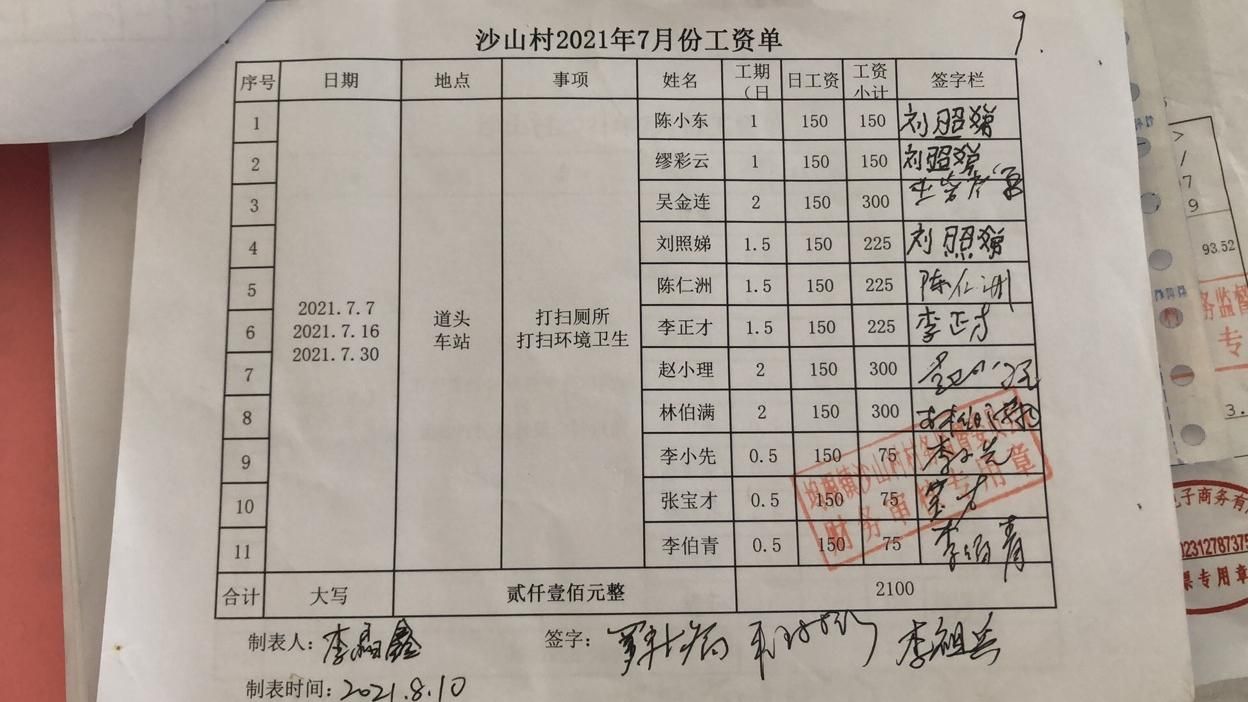 9.
沙山村2021年7月份工资单
序号 日期 地点 事项 姓名 工期（日 日工资 工资小计 签字栏
1 陈小东 1 150 150 刘照娣
2 缪彩云 1 150 150 刘照娣
3 吴金连 2 150 300
4 刘照娣 1.5 150 225 刘照娣
5 陈仁洲 1.5 150 225 陈仁洲
2021.7.7
2021.7.16
2021.7.30
道头
车站
打扫厕所
打扫环境卫生
6 李正才 1.5 150 225 李正才
7 赵小理 2 150 300
8 林伯满 2 150 300
9 李小先 0.5 150 75 李小先
10 张宝才 0.5 150 75
11 李伯青 0.5 150 75 李伯青
财务审核专用章
合计 大写 贰仟壹佰元整 2100
制表人： 签字： 李祖兵
制表时间：2021.8.10
7
9
93.52
务监督
专
3.
电子商务有
02312787375
票专用章